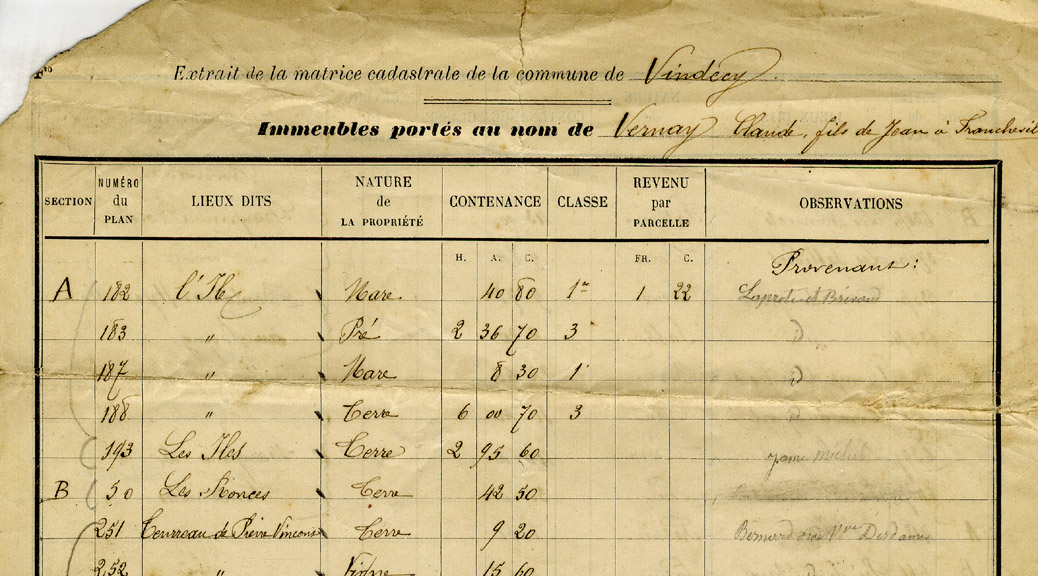 Fto
Extrait de la matrice cadastrale de la commune de Vindecy
Immeubles portés au nom de Vernay Claude, fils de Jean à
SECTION NUMÉRO du PLAN LIEUX DITS NATURE de LA PROPRIÉTÉ CONTENANCE CLASSE REVENU par PARCELLE OBSERVATIONS
H. A. C. FR. C. Provenant :
A 182 l'Ile Mare 40 80 1re 1 22
183 " Pré 2 36 70 3
187 " Mare 8 30 1
188 " Terre 6 00 70 3
193 Les Iles Terre 2 95 60
B 50 Les Ronces Terre 42 50
251 de Pierre Terre 9 20 Bernard Vve
252 " Vigne 15 60